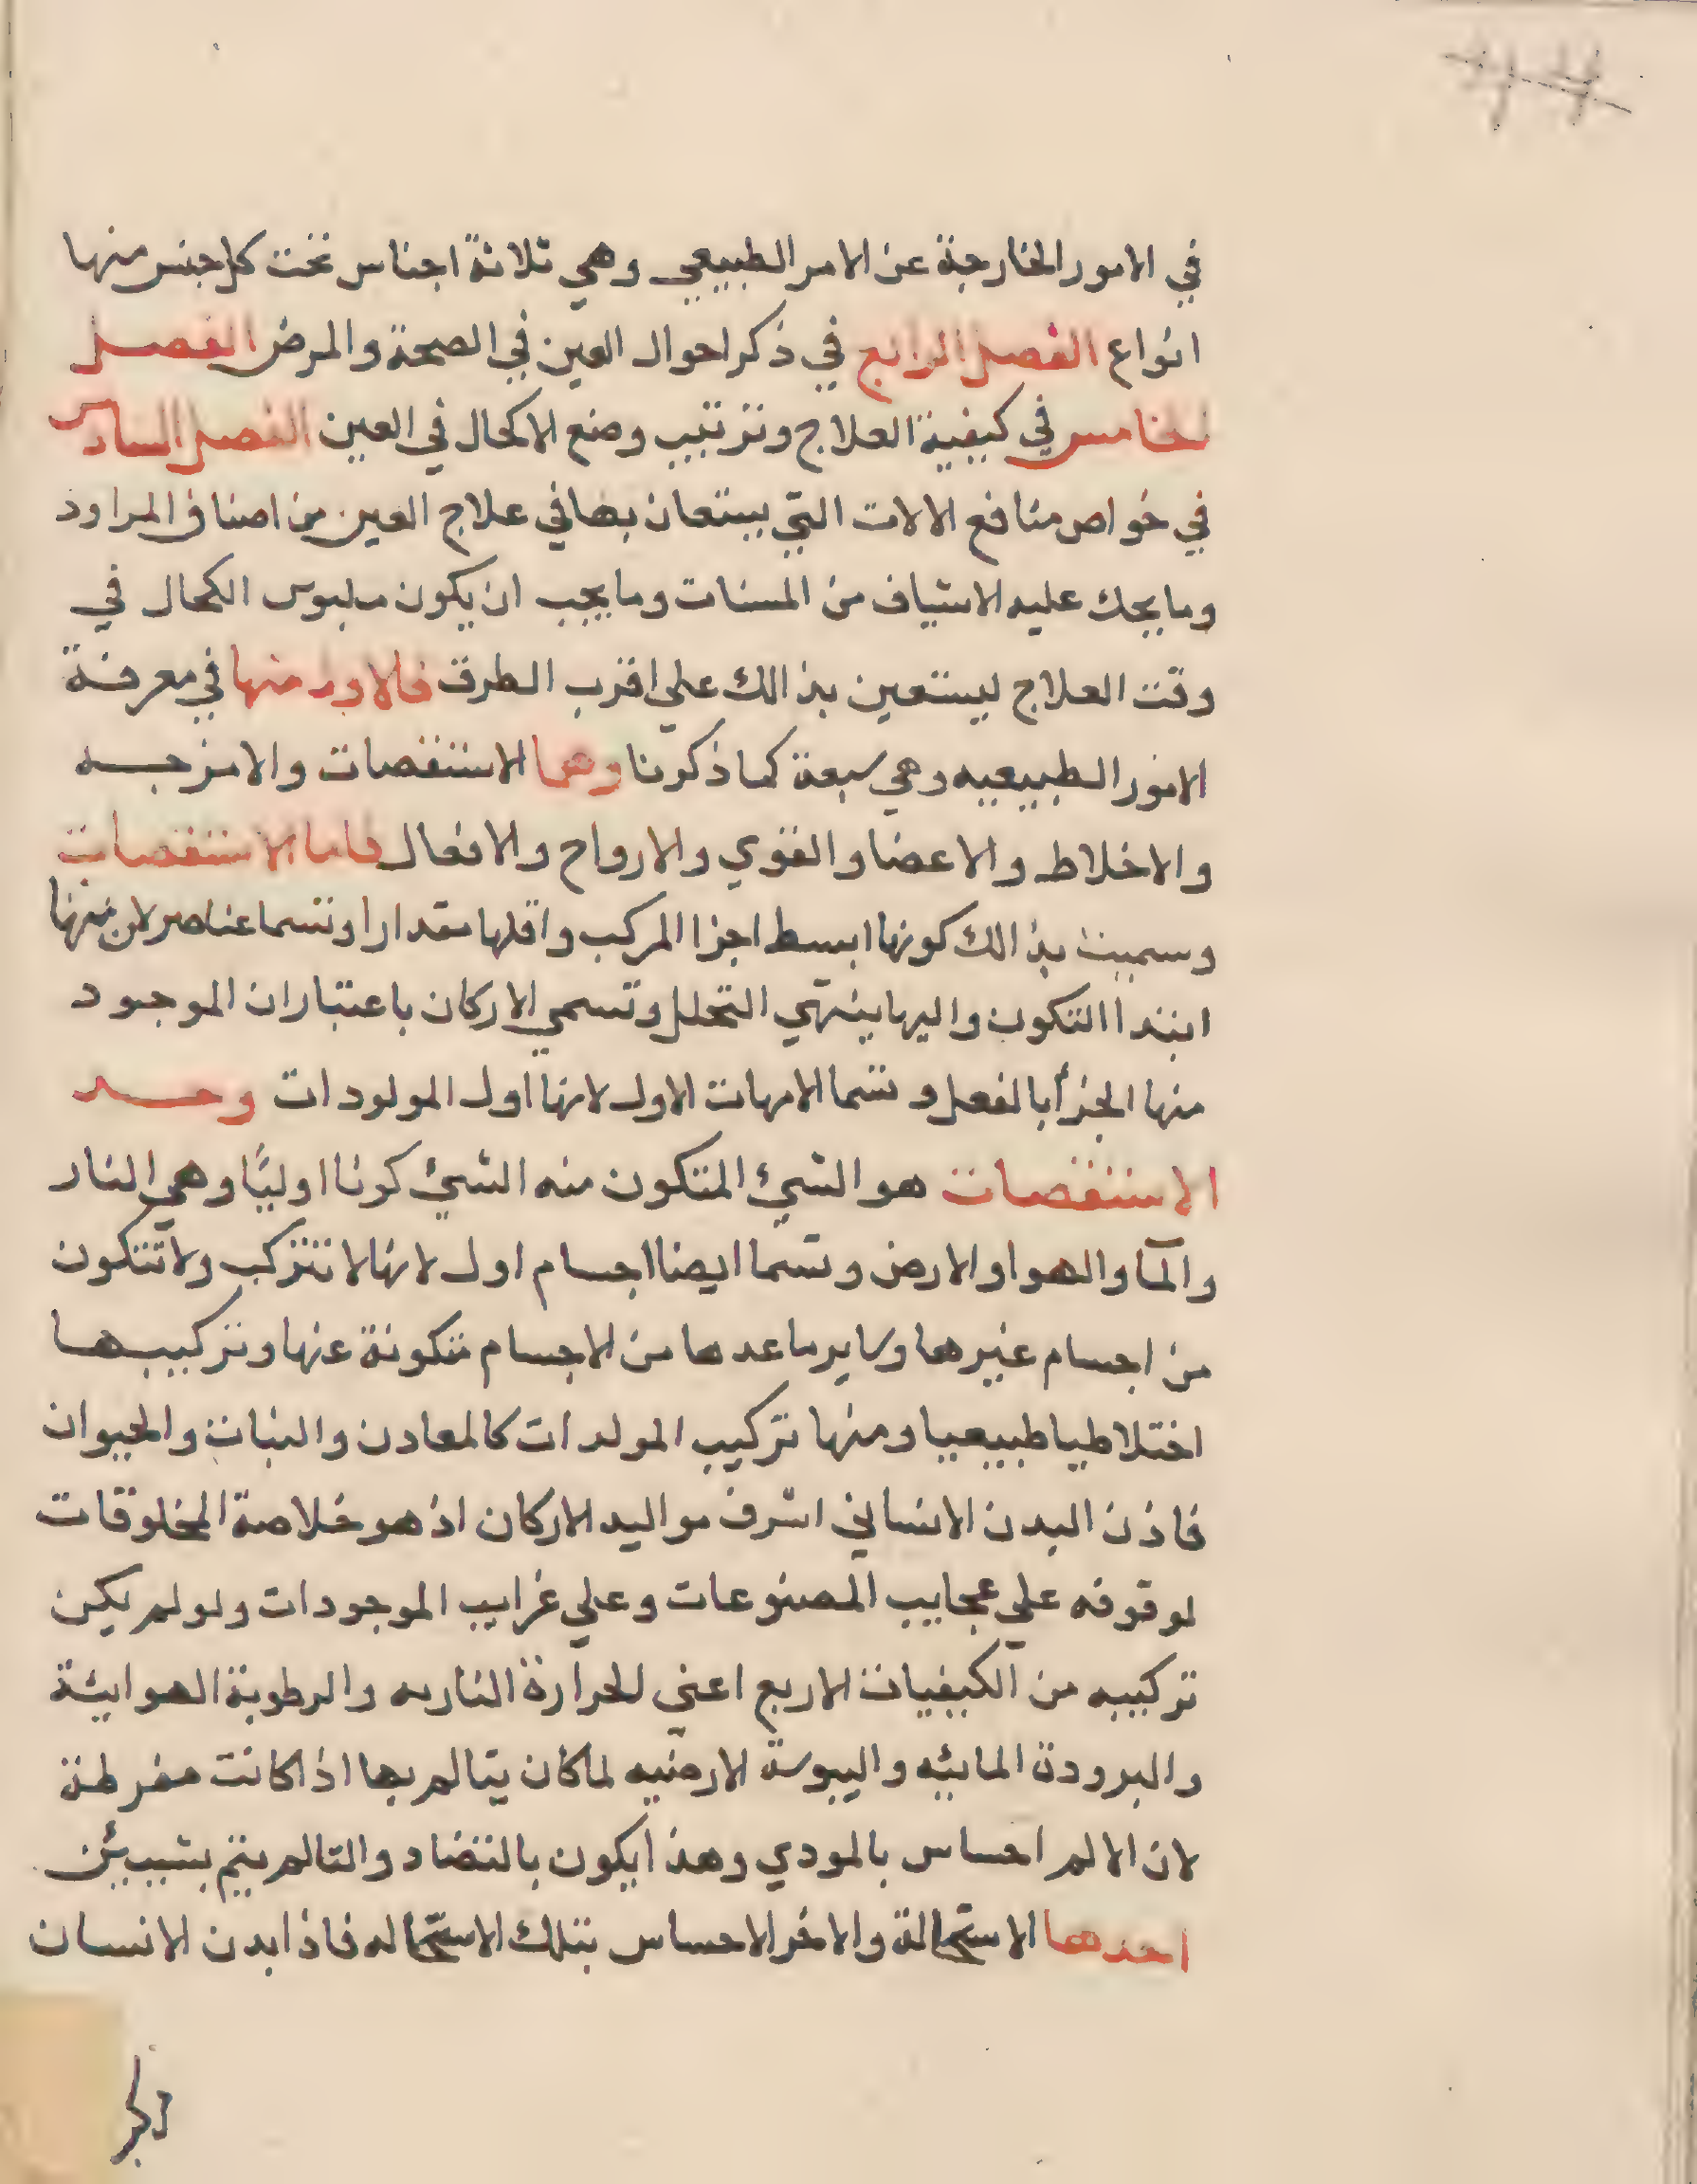 في الامور الخارجة عن الامر الطبيعي وهي ثلاثة اجناس تحت كل جنس منها
انواع الفصل الرابع في ذكر احوال العين في الصحة والمرض الفصل
الخامس في كيفية العلاج وترتيب وضع الاكحال في العين الفصل السادس
في خواص منافع الالات التي يستعان بها في علاج العين من اصناف المراود
وما يحك عليه الاشياف من المسنات وما يجب ان يكون ملبوس الكحال في
وقت العلاج ليستعين بذالك علي اقرب الطرق فالاول منها في معرفة
الامور الطبيعيه وهي سبعة كما ذكرنا وهما الاستقصات والامزجه
والاخلاط والاعضا والقوي والارواح والافعال فاما الاستقصات
وسميت بذالك كونها ابسط اجزا المركب واقلها مقدارا وتسما عناصر لان منها
ابتدا التكون واليها ينتهي التحلل وتسمي الاركان باعتبار ان الموجود
منها الجزأ بالفعل وتسما الامهات الاول لانها اول المولودات وحد
الاستقصات هو الشيئ المتكون منه الشيئ كونا اوليًا وهي النار
والمآ والهوا والارض وتسما ايضا اجسام اول لانها لا تتركب ولا تتكون
من اجسام غيرها وساير ما عدها من الاجسام متكونة عنها وتركيبها
اختلاطيا طبيعيا ومنها تركيب المولدات كالمعادن والنبات والحيوان
فاذن البدن الانساني اشرف مواليد الاركان اذ هو خلاصة المخلوقات
لوقوفه علي عجايب المصنوعات وعلي غرايب الموجودات ولو لم يكن
تركيبه من الكيفيات الاربع اعني الحرارة الناريه والرطوبة الهوايئة
والبرودة المايئه واليبوسة الارضيه لما كان يتالم بها اذا كانت مفرطة
لان الالم احساس بالمودي وهذا يكون بالتضاد والتالم يتم بشيئين
احدهما الاستحالة والاخر الاحساس بتلك الاستحاله فاذا بدن الانسان